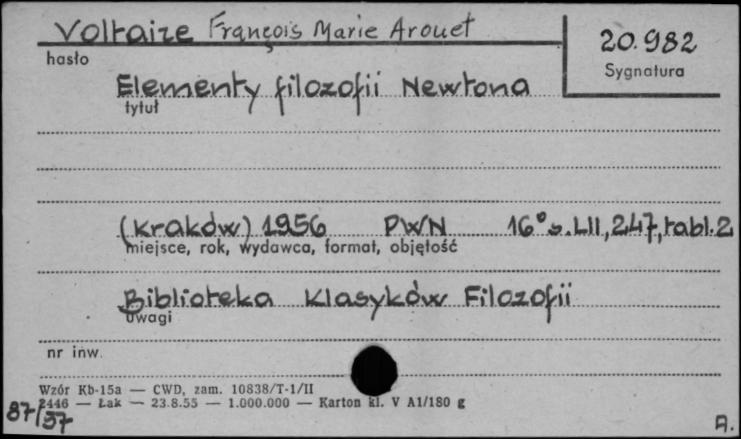 Voltaire François Marie Arouet
hasło
20.982
Sygnatura
Elementy filozofii Newtona
tytuł
(Kraków) 1956 PWN 16° s. LII, 247, tabl. 2
miejsce, rok, wydawca, format, objętość
Biblioteka Klasyków Filozofii
uwagi
nr inw.
Wzór Kb-15a — CWD, zam. 10838/T-1/II
2446 — Łak — 23.8.55 — 1.000.000 — Karton kl. V A1/180 g
87/57
A.